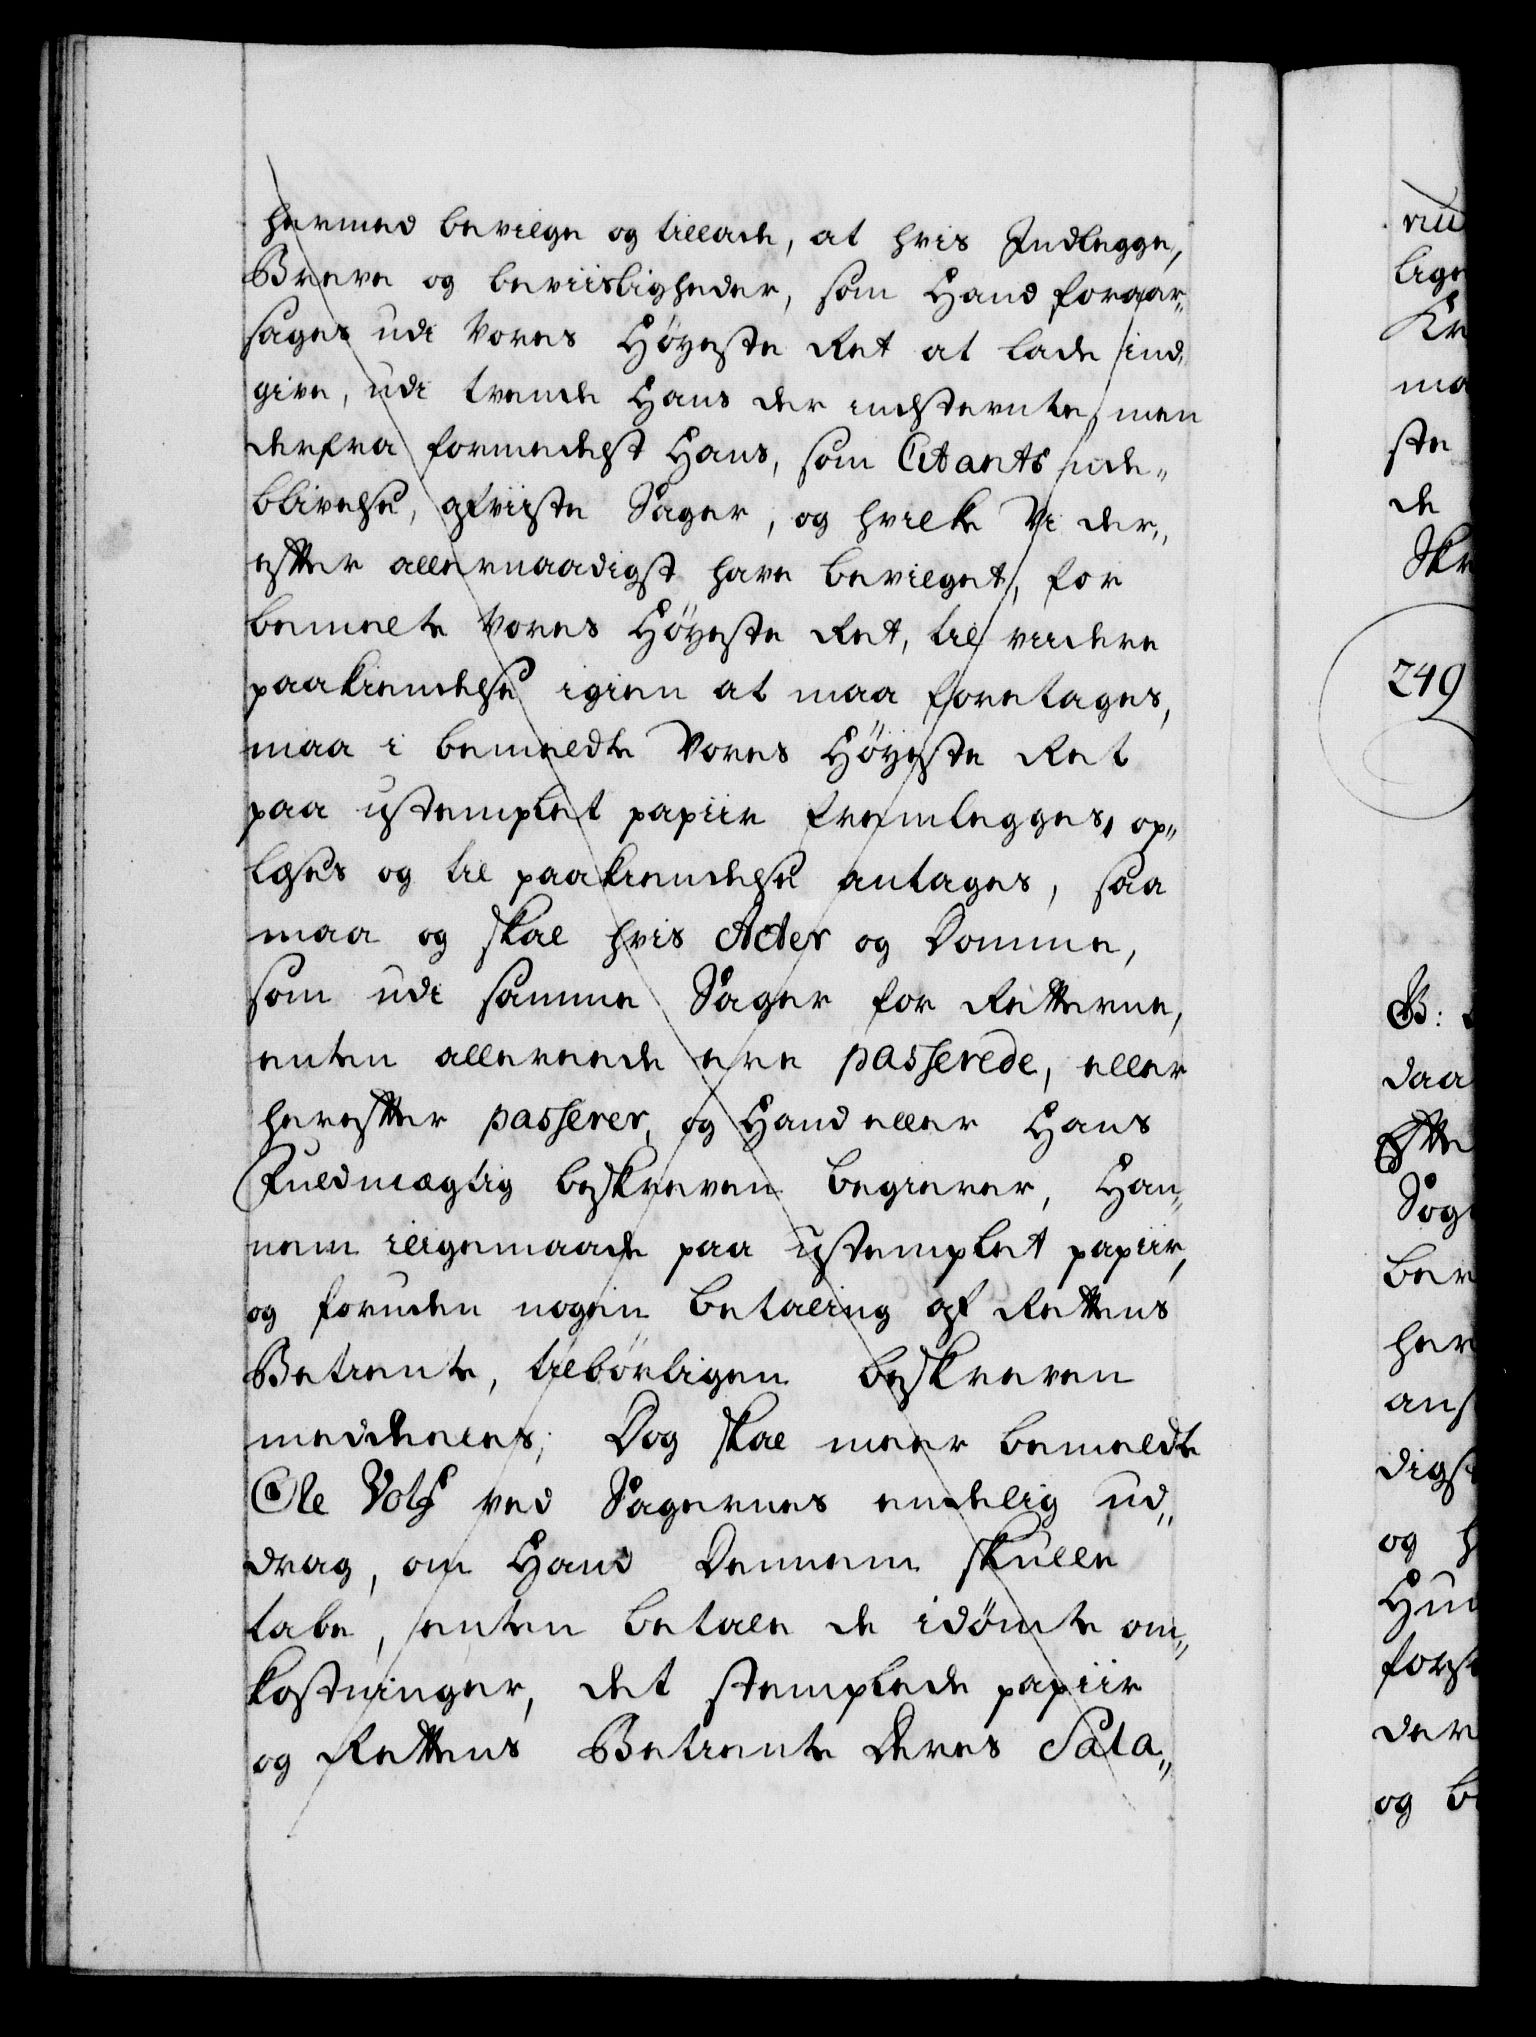 hermed bevilge og tillade, at hvis Indlegge,
Breve og beviisligheder, som Hand foraar„
sages udi Vores Høyeste Ret at lade ind„
give, udi trende Hans der indstevnte, men
derfra formedelst Hans, som Citants ude„
blivelse, afviiste Sager, og hvilke Vi der„
efter allernaadigst have bevilget, for
bemelte Vores Høyeste Ret, til viidere
paakiendelse igien at maa foretages,
maa i bemeldte Vores Høyeste Ret
paa ustemplet papiir fremlegges, op„
læses og til paakiendelse antages, saa
maa og skal hvis Acter og Domme,
som udi samme Sager for Retterne,
enten allereede ere passerede, eller
herefter passerer, og Hand eller Hans
Fuldmægtig beskreven begierer, Han„
nem iligemaade paa ustemplet papiir,
og foruden nogen betaling af Rettens
Betiente, tilbørligen beskreven
meddeeles; Dog skal meer bemeldte
Ole Volf ved Sagernes endelig ud„
drag, om Hand Dennem skulle
tabe, enten betale de idømte om„
kostninger, det stemplede papiir
og Rettens Betiente Deres Sala„
lige
ma
ste
de
249
B:
daa
Efte
ber
her
ans
digst
og
der
og